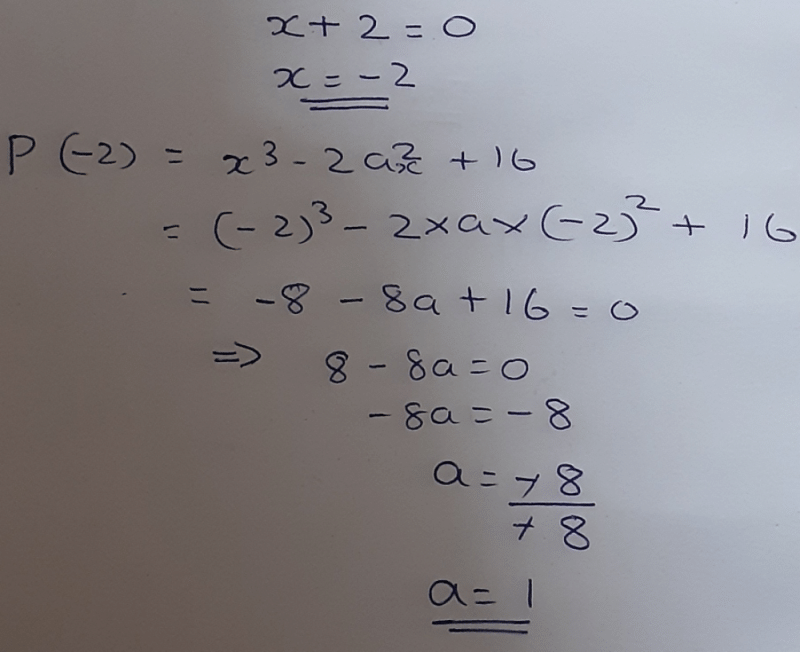 x + 2 = 0
x = -2
P (-2) = x³ - 2ax² + 16
= (-2)³ - 2×a×(-2)² + 16
= -8 - 8a + 16 = 0
=> 8 - 8a = 0
-8a = -8
a = -8
-8
a = 1